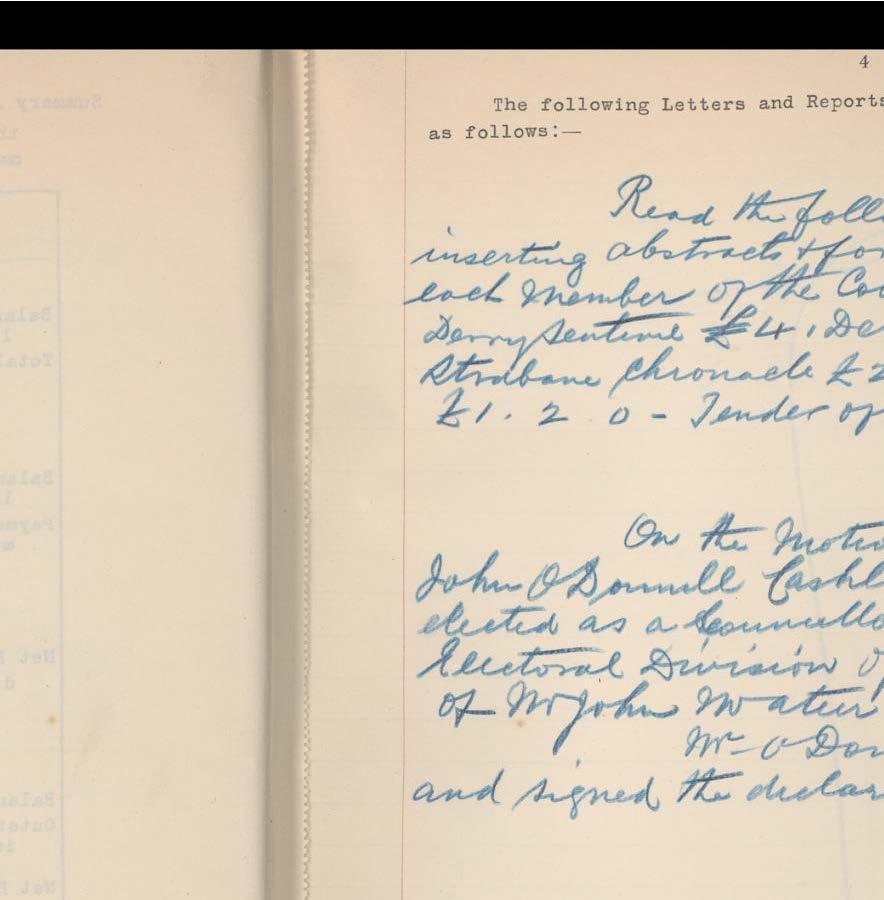 4
The following Letters and Reports
as follows:—
Read the follo
inserting abstracts & for
each Member of the Cou
Derry Sentinel £4, De
Strabane Chronacle £2
£1. 2 0 - Tender of
On the Motio
John O Donnell Cashl
elected as a Councillo
Electoral Division of
of Mr John
Mr O Don
and signed the declar